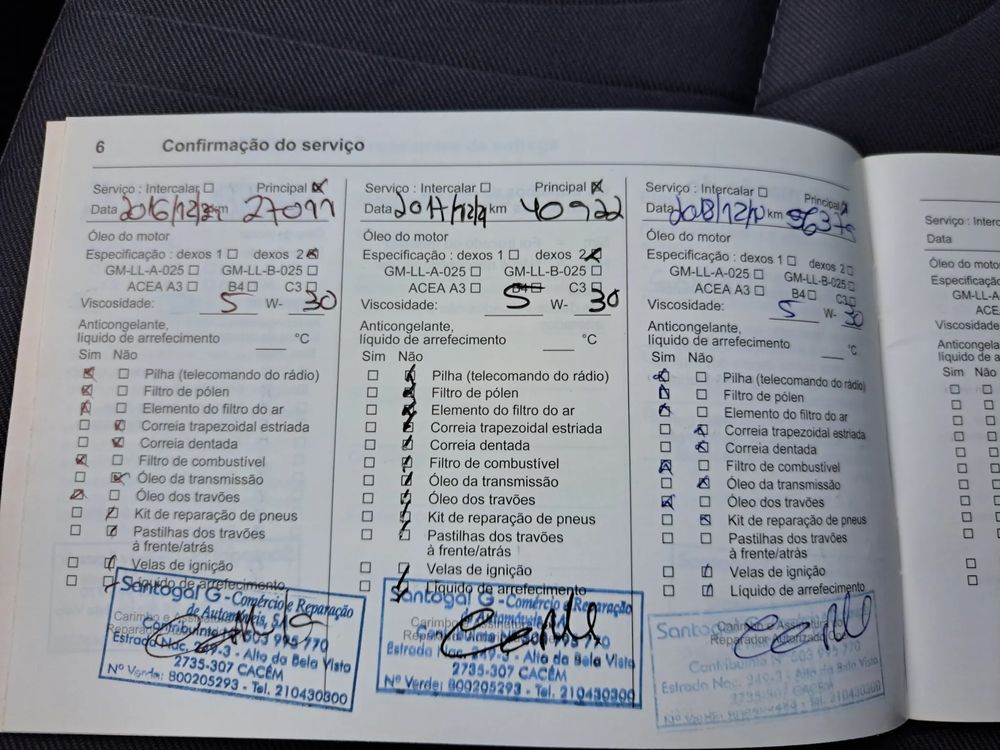 6 Confirmação do serviço
Serviço : Intercalar Principal
Data 2016/12/ km 27099
Óleo do motor
Especificação : dexos 1 dexos 2
GM-LL-A-025 GM-LL-B-025
ACEA A3 B4 C3
Viscosidade: 5 W- 30
Anticongelante,
líquido de arrefecimento °C
Sim Não
Pilha (telecomando do rádio)
Filtro de pólen
Elemento do filtro do ar
Correia trapezoidal estriada
Correia dentada
Filtro de combustível
Óleo da transmissão
Óleo dos travões
Kit de reparação de pneus
Pastilhas dos travões
à frente/atrás
Velas de ignição
Líquido de arrefecimento
Santogal G - Comércio e Reparação
de Automóveis, S.A.
Contribuinte Nº 503 995 770
Estrada Nac. 249-3 - Alto da Bela Vista
2735-307 CACÉM
Nº Verde: 800205293 - Tel. 210430300
Serviço : Intercalar Principal
Data 2017/12/9 km 40922
Óleo do motor
Especificação : dexos 1 dexos 2
GM-LL-A-025 GM-LL-B-025
ACEA A3 B4 C3
Viscosidade: 5 W- 30
Anticongelante,
líquido de arrefecimento °C
Sim Não
Pilha (telecomando do rádio)
Filtro de pólen
Elemento do filtro do ar
Correia trapezoidal estriada
Correia dentada
Filtro de combustível
Óleo da transmissão
Óleo dos travões
Kit de reparação de pneus
Pastilhas dos travões
à frente/atrás
Velas de ignição
Líquido de arrefecimento
Santogal G - Comércio e Reparação
Estrada Nac. 249-3 - Alto da Bela Vista
2735-307 CACÉM
Nº Verde: 800205293 - Tel. 210430300
Serviço : Intercalar Principal
Data 2018/12/ km 56375
Óleo do motor
Especificação : dexos 1 dexos 2
GM-LL-A-025 GM-LL-B-025
ACEA A3 B4 C3
Viscosidade: 5 W- 30
Anticongelante,
líquido de arrefecimento °C
Sim Não
Pilha (telecomando do rádio)
Filtro de pólen
Elemento do filtro do ar
Correia trapezoidal estriada
Correia dentada
Filtro de combustível
Óleo da transmissão
Óleo dos travões
Kit de reparação de pneus
Pastilhas dos travões
à frente/atrás
Velas de ignição
Líquido de arrefecimento
Carimbo e Assinatura do
Reparador Autorizado
Contribuinte Nº 503 995 770
Estrada Nac. 249-3 - Alto da Bela Vista
2735-307 CACÉM
Serviço : Interc
Data
Óleo do moto
Especificação
GM-LL-A
ACE
Viscosidade:
Anticongela
líquido de a
Sim Não